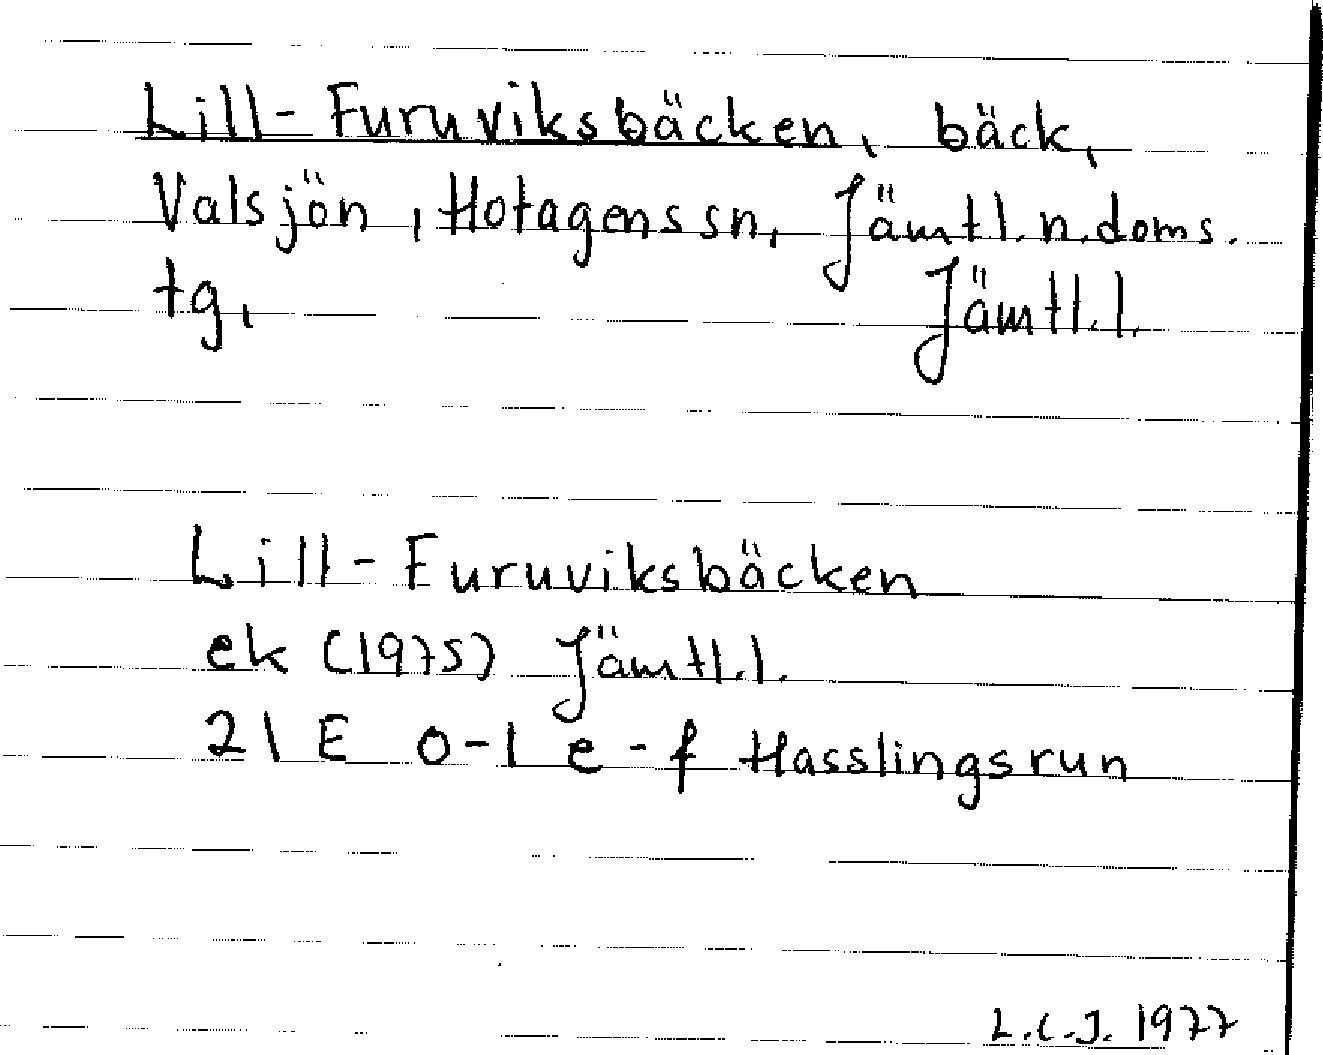 Lill-Furuviksbäcken, bäck,
Valsjön, Hotagens sn, Jämtl. n. doms.
tg, Jämtl. l.
Lill-Furuviksbäcken
ek (1975) Jämtl. l.
21 E 0-1 e-f Hasslingsrun
L.C.J. 1977